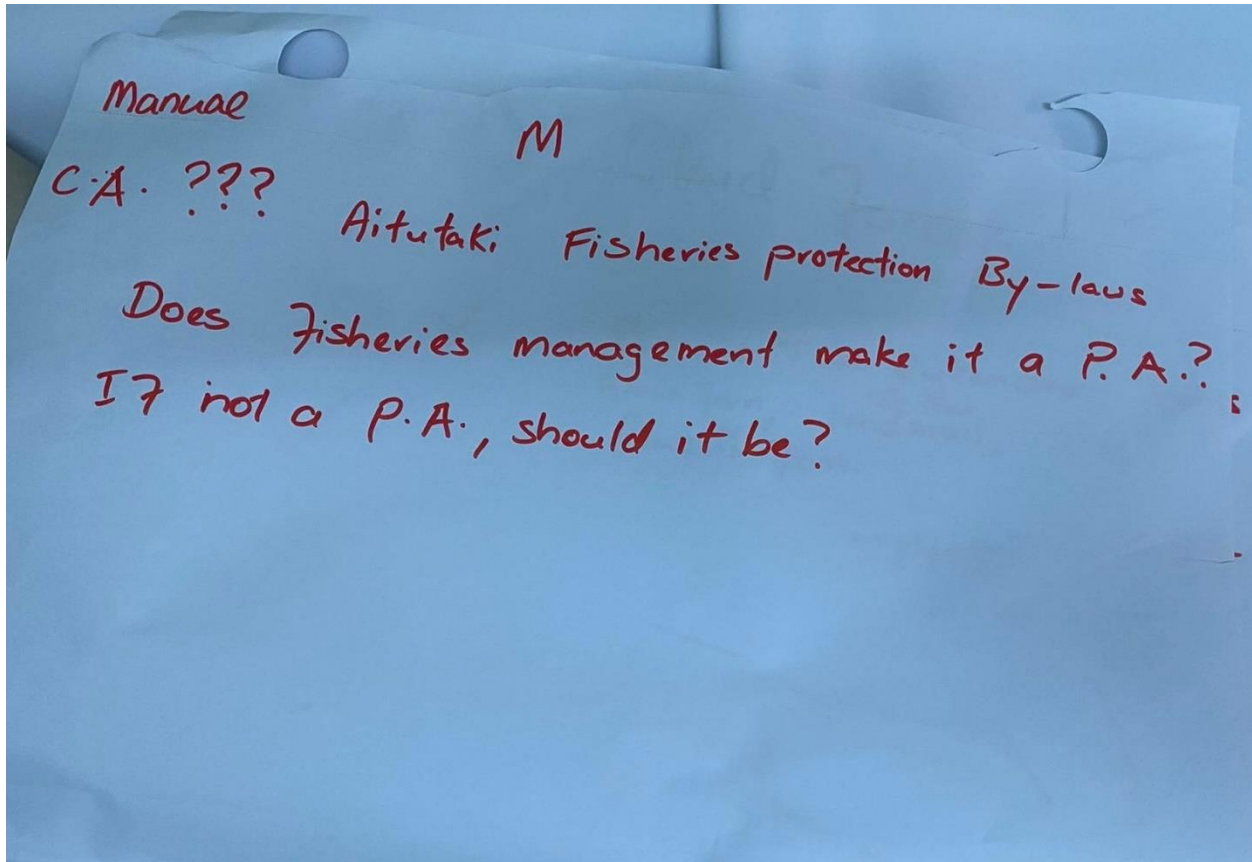 Manual
M
C.A. ???
Aitutaki Fisheries protection By-laws
Does Fisheries management make it a P.A.?
If not a P.A., should it be?